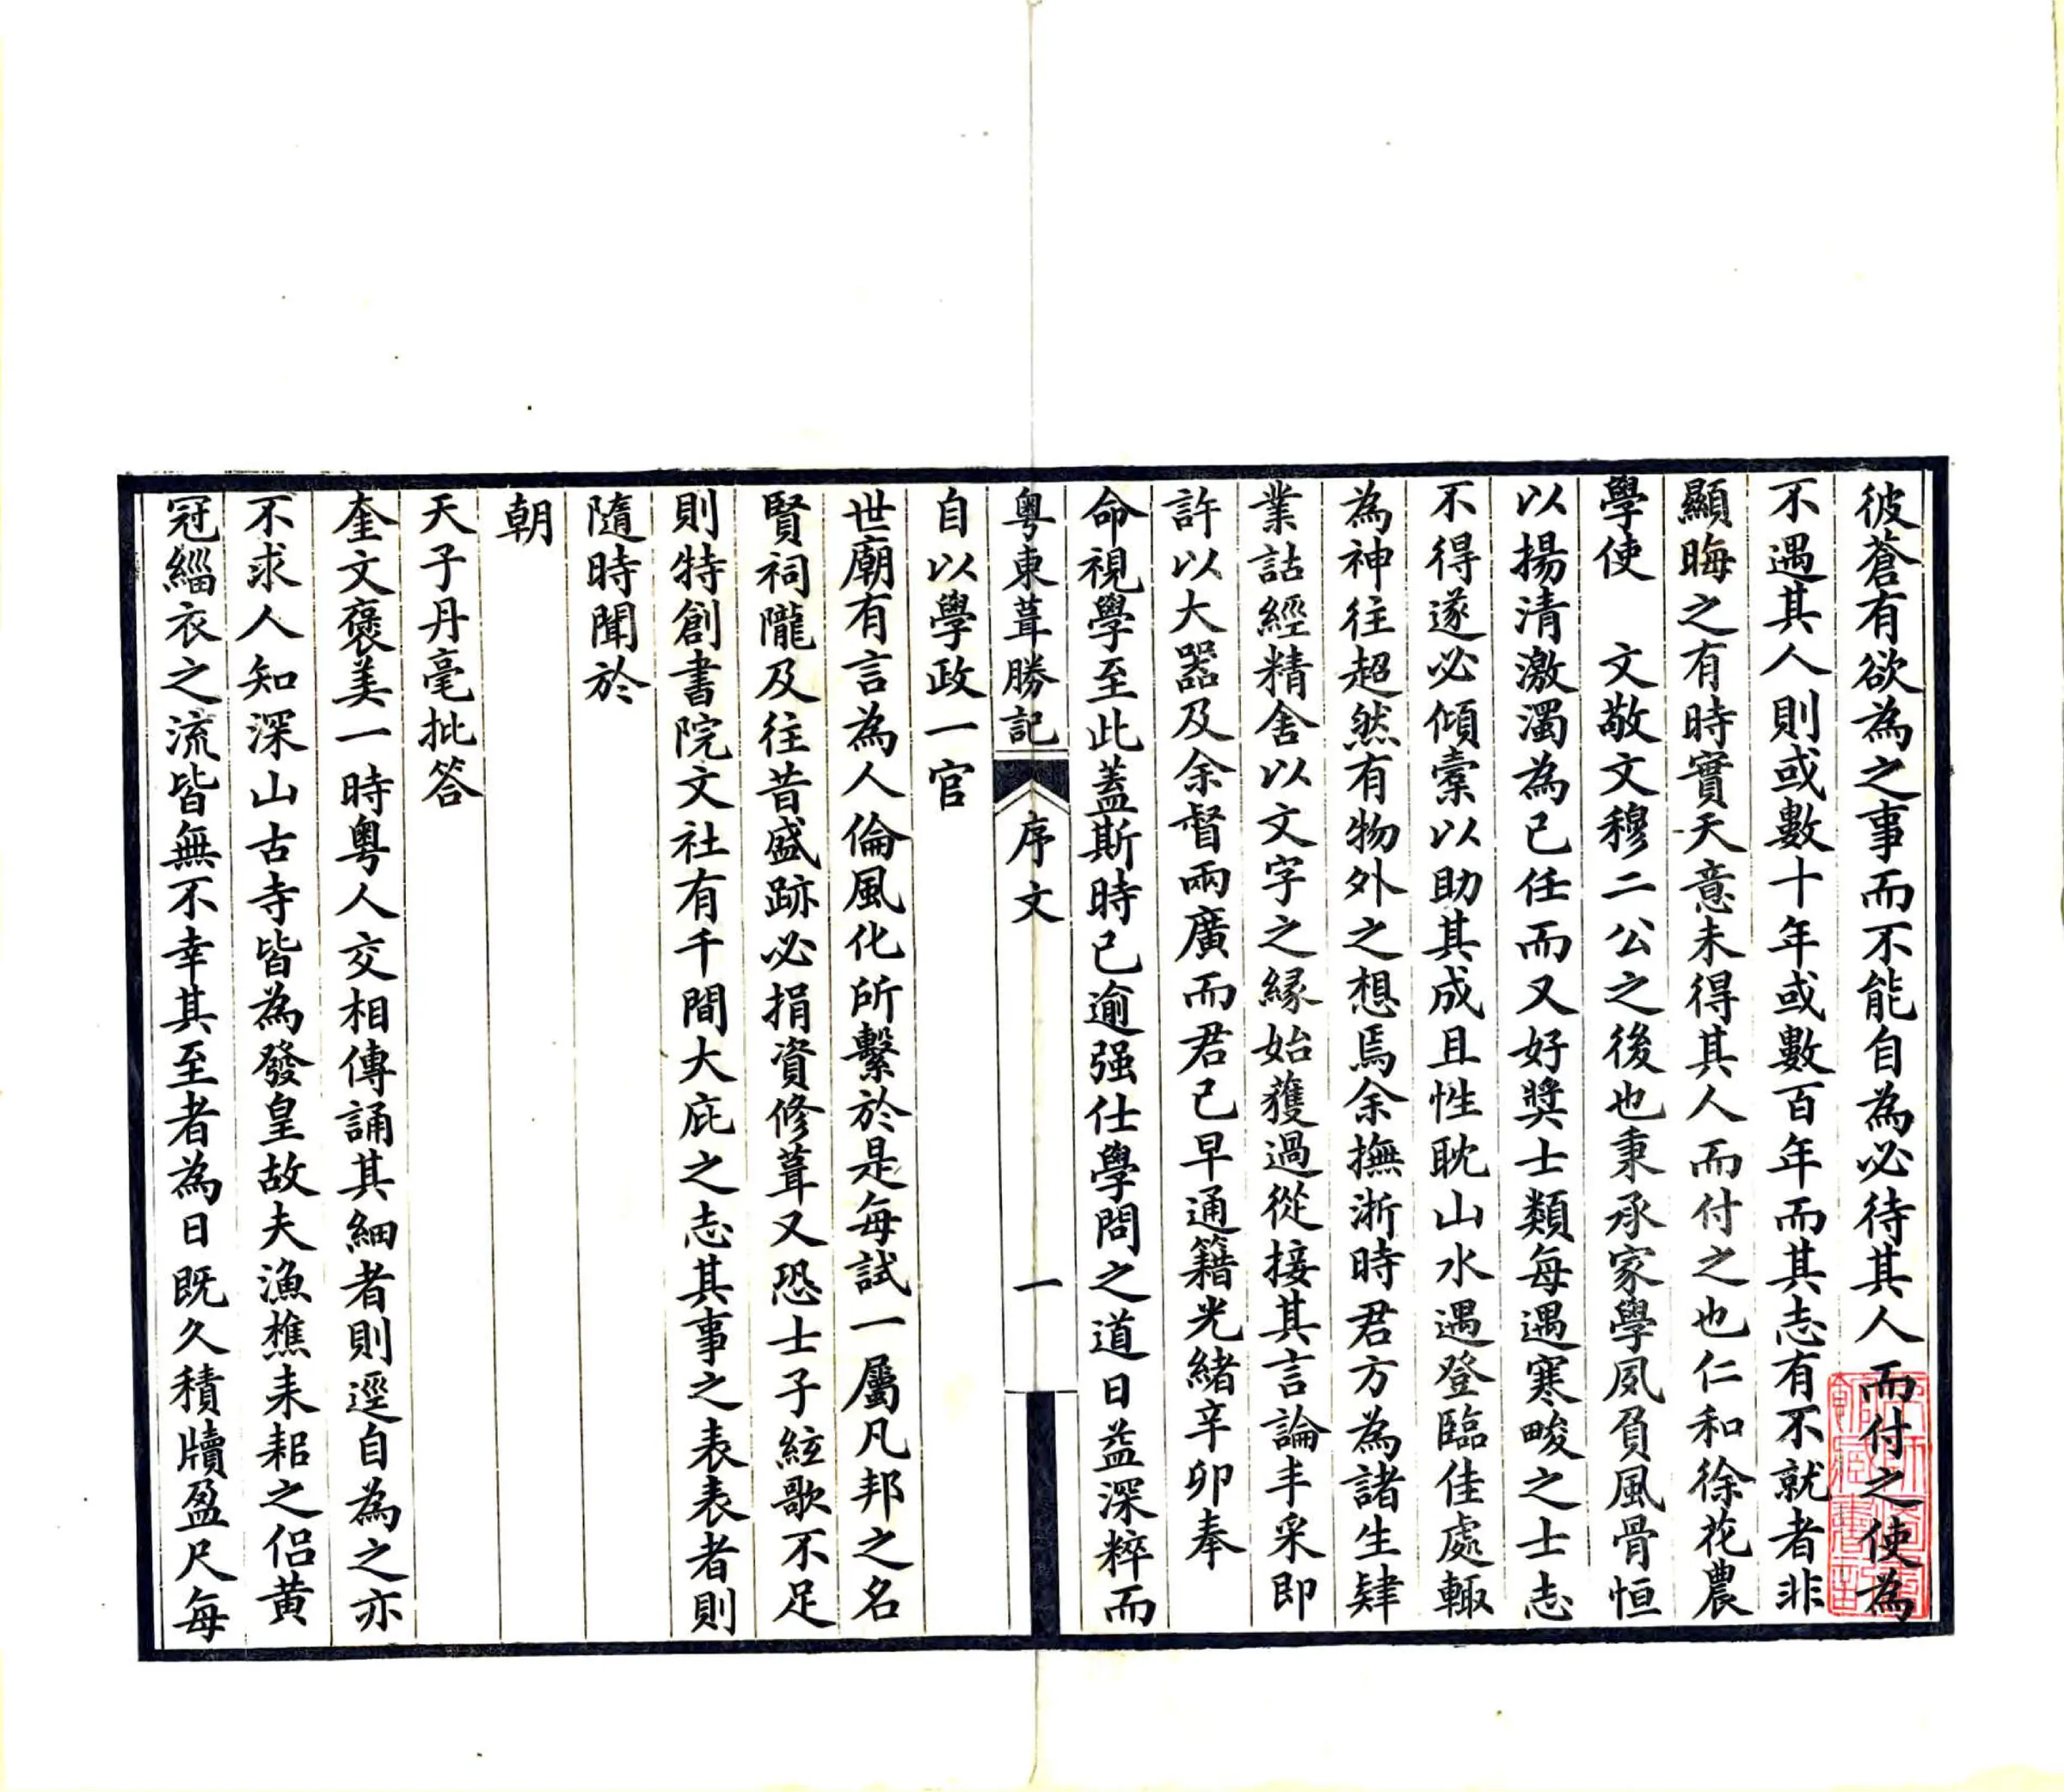 彼蒼有欲為之事而不能自為必待其人而付之使為
不遇其人則或數十年或數百年而其志有不就者非
顯晦之有時實天意未得其人而付之也仁和徐花農
學使　文敬文穆二公之後也秉承家學夙負風骨恒
以揚清激濁為己任而又好獎士類每遇寒畯之士志
不得遂必傾橐以助其成且性耽山水遇登臨佳處輒
為神往超然有物外之想焉余撫浙時君方為諸生肄
業詁經精舍以文字之緣始獲過從接其言論丰采即
許以大器及余督兩廣而君已早通籍光緒辛卯奉
命視學至此蓋斯時已逾强仕學問之道日益深粹而
粵東葺勝記　序文　一
自以學政一官
世廟有言為人倫風化所繫於是每試一屬凡邦之名
賢祠隴及往昔盛跡必捐資修葺又恐士子絃歌不足
則特創書院文社有千間大庇之志其事之表表者則
隨時聞於
朝
天子丹毫批答
奎文褒美一時粵人交相傳誦其細者則逕自為之亦
不求人知深山古寺皆為發皇故夫漁樵耒耜之侶黃
冠緇衣之流皆無不幸其至者為日既久積牘盈尺每